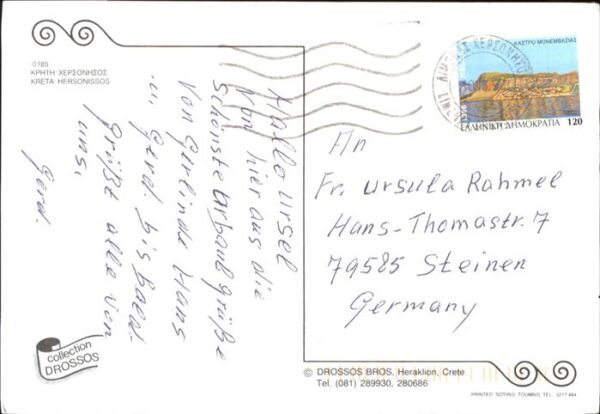 0185
ΚΡΗΤΗ: ΧΕΡΣΟΝΗΣΟΣ
KRETA: HERSONISSOS
Hallo Ursel
Von hier aus die
schönste Urlaubsgrüße
Von Gerlinde Hans
u. Gerd. bis bald.
Grüßt alle von
uns.
Gerd.
collection
DROSSOS
ΚΑΣΤΡΟ ΜΟΝΕΜΒΑΣΙΑΣ
ΕΛΛΗΝΙΚΗ ΔΗΜΟΚΡΑΤΙΑ 120
ΧΕΡΣΟΝΗΣΟΥ
An
Fr. Ursula Rahmel
Hans-Thomastr. 7
79585 Steinen
Germany
© DROSSOS BROS, Heraklion, Crete
Tel. (081) 289930, 280686
PRINTED SOTIRIS TOUMBIS TEL. 3217 484